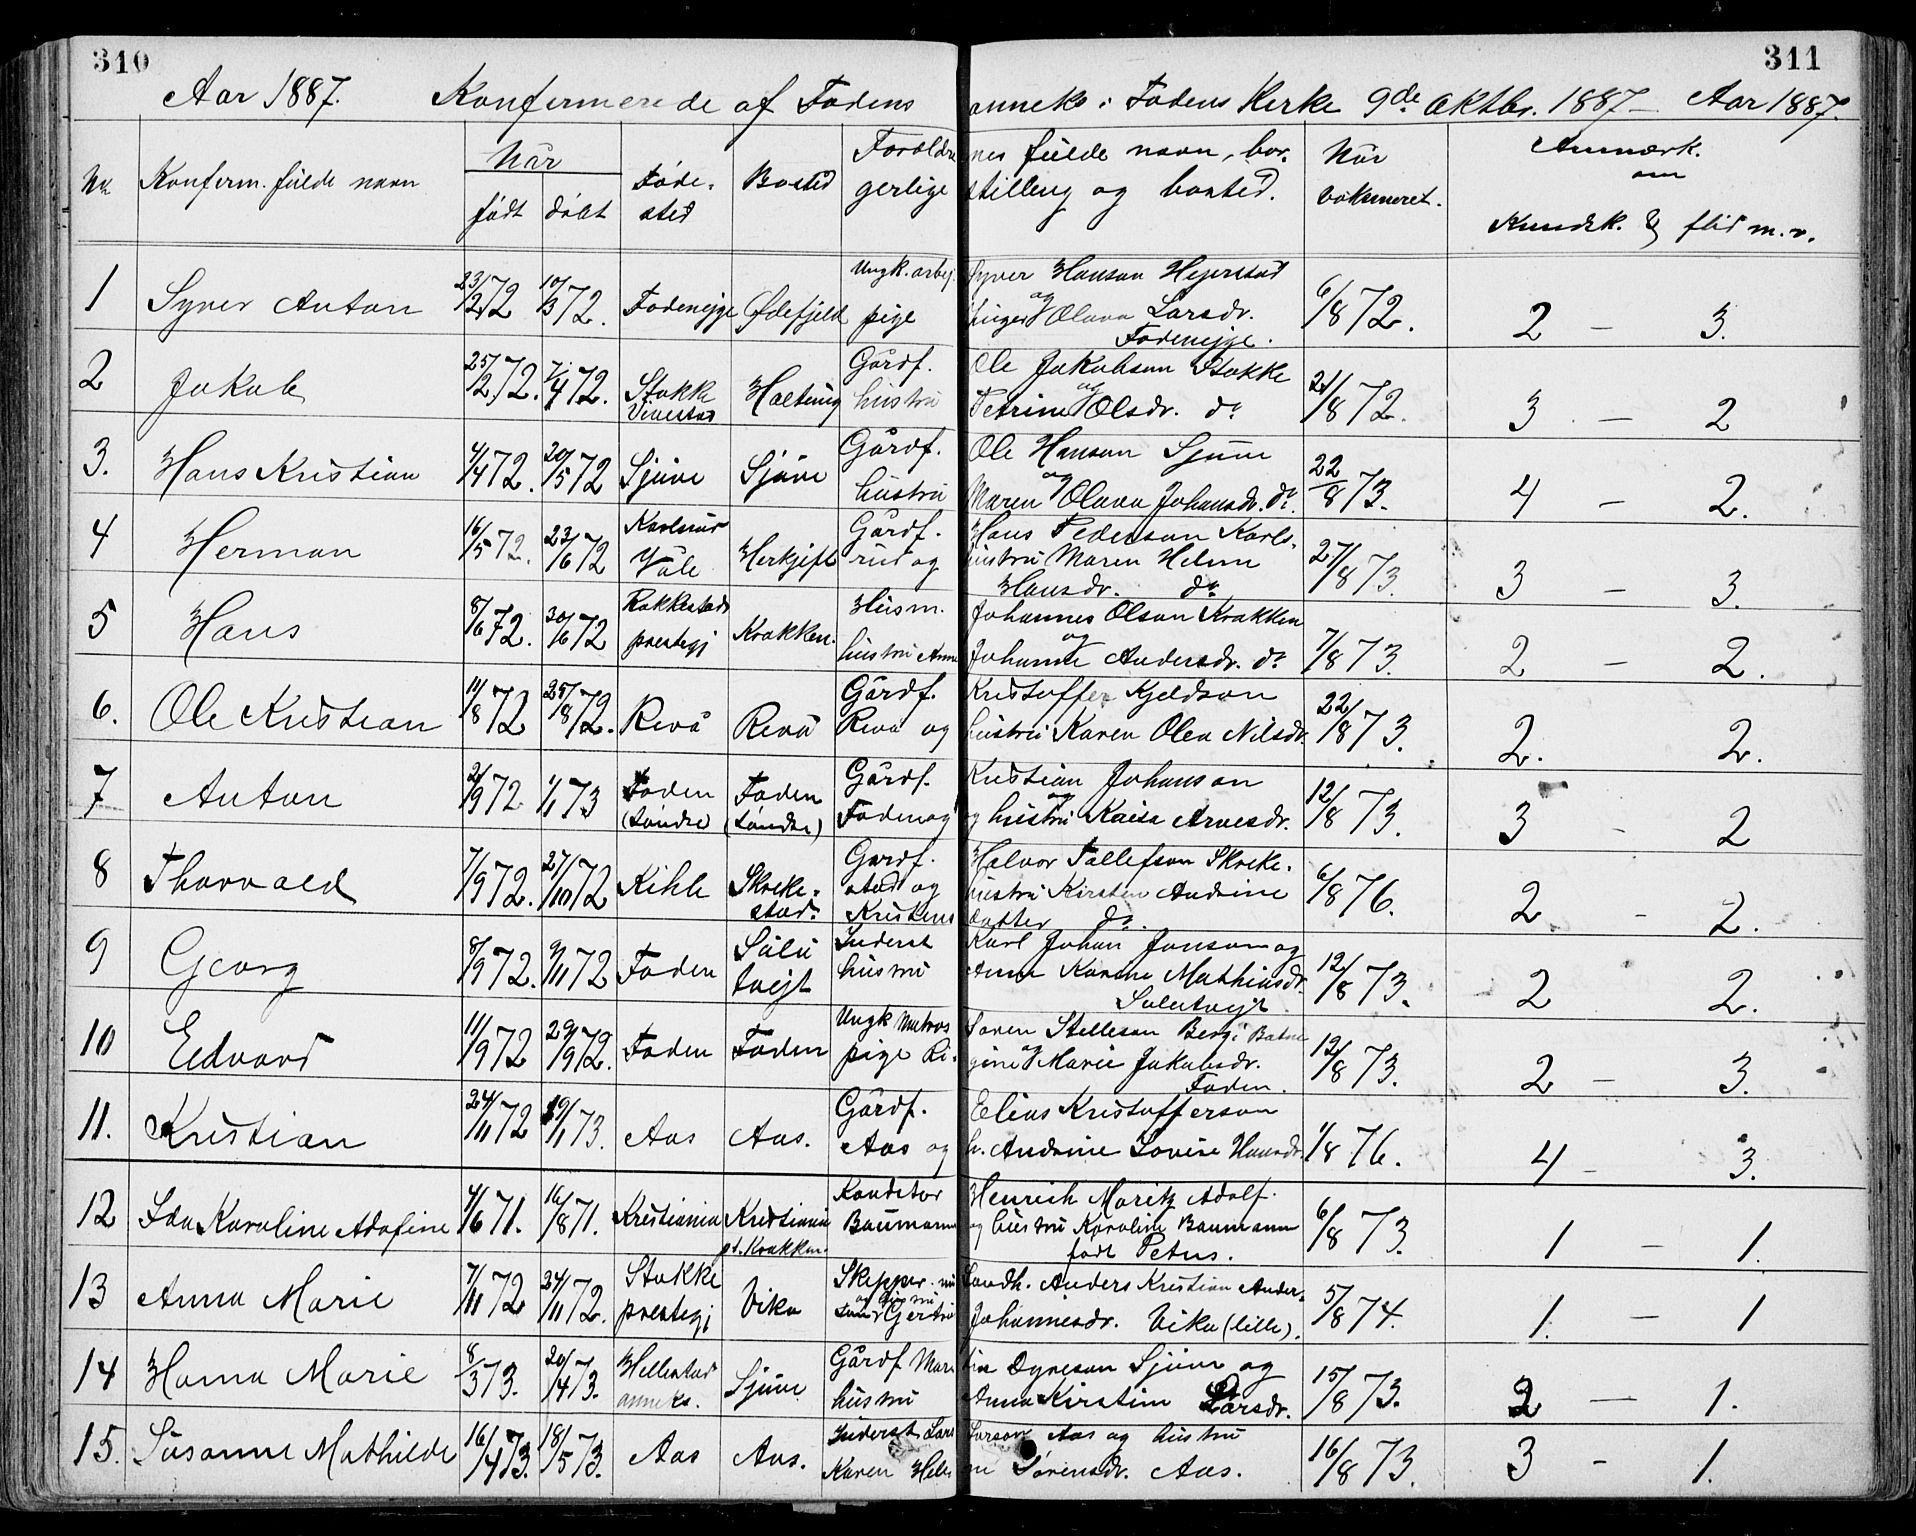 310
311
Aar 1887. Konfirmerede af Fodens anneks i Fodens Kirke 9de Oktbr. 1887 – Aar 1887.
No. Konferm. fulde navn Når født døbt Føde-sted Bosted Forældrenes fulde navn, borgerlige stilling og bosted. Når vaksineret. Anmærk. om Kundsk. & flid m.v.
1 Syver Anton 23/2 72 10/3 72. Fodenejge Ødefjeld Ungk. arbej. Syver Hanson
pige Olava Larsdr. Fodenejge. 6/8 72. 2 – 3.
2 Jakob 25/2 72. 7/4 72. Stokke Vivestad Gårdf. Ole Jakobson Stokke
hustru Petrine Olsdr. do 21/8 72. 3 – 2
3. Hans Kristian 4/4 72. 20/5 72 Sjúve Sjúve Gårdf. Ole Hanson
hustru Maren Olava Johansdr. do. 22/8 73. 4 – 2.
4 Herman 16/5 72. 23/6 72 Våle Gårdf. Hans Pederson Karls-
rud og hustru Maren Helene
Hansdr. do 27/8 73. 3 – 3.
5 Hans 8/6 72. 30/6 72 Rakkestads prestegj Krakken. Husm. Johannes Olson Krakken
hustru Anne Johanne Andersdr. do 7/8 73. 2 – 2.
6. Ole Kristian 11/8 72 25/8 72. Revå Revå Gårdf. Kristoffer Kjeldson
Revå og hustru Karen Olea Nilsdr. 22/8 73. 2. 2.
7 Anton 2/9 72 1/1 73 Foden (søndre) Foden (søndre) Gårdf. Kristian Johanson
Foden og hustru Kaisa Arnesdr. 12/8 73. 3 – 2
8 Thorvald 7/9 72. 27/10 72 Kihle Skrekestad. Gardf. Halvor Tollefson Skreke-
stad og hustru Kirsten Andrine
Kristensdatter do. 6/8 76. 2 – 2.
9 Georg 8/9 72. 9/11 72 Foden Inderst Karl Johan Jonson og
hustru Anne Karine Mathiasdr. 12/8 73. 2 2.
10 Edvard 11/9 72 29/9 72. Foden Foden Ungk Matros Soren Stelleson Berg i
pige Regine Marie Jakobsdr.
Foden. 12/8 73. 2 – 3.
11. Kristian 24/11 72 19/1 73. Aas Aas. Gårdf. Elias Kristofferson
Aas og h. Andrine Lovise Hansdr. 1/8 76. 4 – 3.
12 Ida Karoline Adofine 4/6 71. 16/8 71. Kristiania Kristiania pt. Krakken. Konditor Henrich Moritz Adolf
Baumann og hustru Karoline Baumann
født Petus. 6/8 73. 1 – 1.
13 Anna Marie 7/11 72 24/11 72. Stokke prestegj Vika Skipper Anders Kristian Anderson
og hustru Gjertru Johannesdr. Vika (lille). 5/8 74. 1. – 1
14 Hanna Marie 8/3 73. 20/4 73. Hellestad anneks. Sjúve Gårdf Martin Dyreson Sjúve og
hustru Anna Kirstine Larsdr. 15/8 73. 2 – 1.
15. Susanne Mathilde 16/4 73. 18/5 73. Aas Aas. Inderst Lars Larson Aas og hustru
Karen Helene Sørensdr. Aas. 16/8 73. 3 – 1.